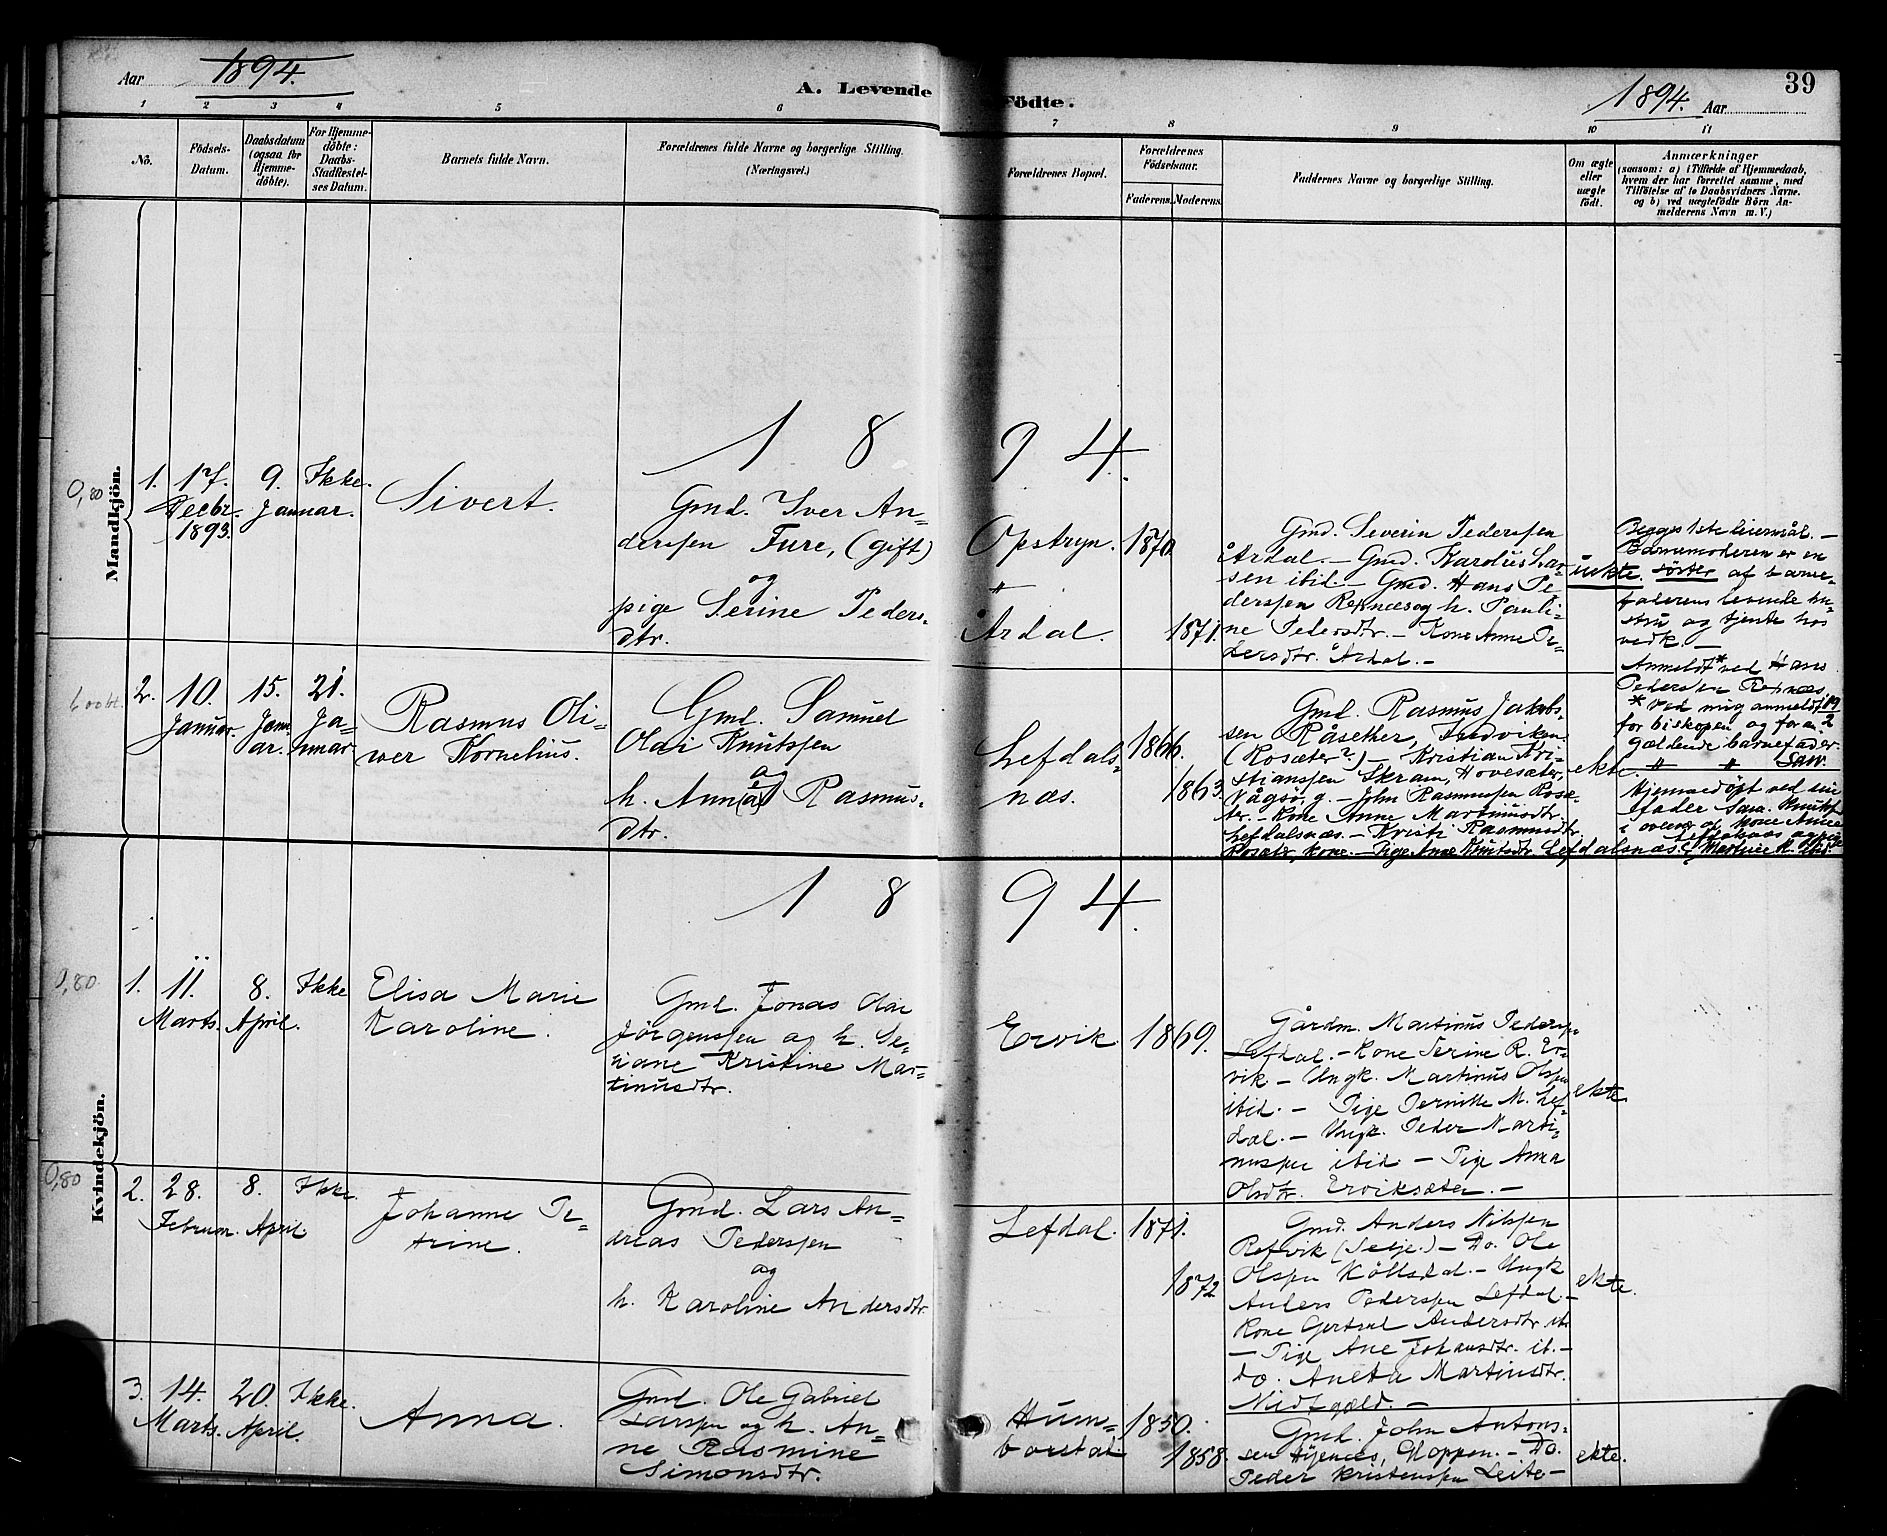 Aar 1894.
A. Levende Födte.
1894. Aar 39
1 2 3 4 5 6 7 8 9 10 11
Nò.
Födsels-
Datum.
Daabsdatum
(ogsaa for
Hjemme-
døbte).
For Hjemme-
døbte:
Daabs-
Stadfæstel-
ses Datum.
Barnets fulde Navn.
Forældrenes fulde Navne og borgerlige Stilling.
(Næringsvei.)
Forældrenes Bopæl.
Forældrenes
Födselsaar.
Faderens. Moderens.
Faddernes Navne og borgerlige Stilling.
Om ægte
eller
uægte
født.
Anmærkninger
(saasom: a) i Tilfælde af Hjemmedaab,
hvem der har forrettet samme, med
Tilføielse af to Daabsvidners Navne.
og b) ved uægtefødte Börn An-
melderens Navn m. V.)
Mandkjön.
1 8 9 4.
0,80
1. 17. Decbr. 1893.
9. Januar.
Ikke.
Sivert.
Gmd. Iver An-
derssen Fure, (gift)
og
pige Serine Peders-
dtr.
Opstryn.
"
Årdal.
1870.
1871.
Gmd. Severin Pederssen
Årdal. — Gmd. Karolus Lar-
sen ibid. — Gmd. Hans Pe-
derssen Refnæs og h. Pauli-
ne Pedersdtr. — Kone Anne Pe-
dersdtr. Årdal. —
uekte.
Begges 1ste leiermål. —
Barnemoderen er en
søster af barne-
faderens levende hu-
stru og tjente hos
vedk. —
Anmeldt* ved Hans
Pederssen Refnæs.
* Ved mig anmeldt 19/2
for biskopen og for an-
gældende barnefader.
" "
2. 10. Januar.
15. Janu-
ar.
21. Ja-
nuar
Rasmus Oli-
ver Kornelius.
Gmd. Samuel
Olai Knutssen
og
h. Ann(a) Rasmus-
dtr.
Lefdals-
næs.
1866.
1863.
Gmd. Rasmus Jakobs-
sen Råsether, Indviken
(Rosæter?) — Kristian Kri-
stianssen Skram, Hovesæter,
Vågsö g. — John Rasmussen Rosæ-
ter. — Kone Anne Martinusdtr.
Lefdalsnæs. — Kristi Rasmusdtr.
Rosæter, kone. — Pige Anne Knutsdtr. Lefdalsnæs.
ekte.
Hjemmedøbt ved sin
fader Sam. Knutss.
i overvær af kone Anne
Lefdalsnæs og pige
Kvindekjön.
1 8 9 4.
0,80.
1. 11. Marts.
8. April.
Ikke
Elisa Marie
Karoline.
Gmd. Jonas Olai
Jörgenssen og h. Se-
riane Kristine Mar-
tinusdtr.
Ervik.
1869.
Gårdm. Martinus Pederss.
Lefdal. — Kone Serine R. Er-
vik — Ungk. Martinus Olssen
ibid. — Pige Pernille M. Lef-
dal. — Ungk. Peder Marti-
nussen ibid — Pige Anna
Olsdtr. Erviksæter. —
ekte.
0,80
2. 28. Februar.
8. April.
Ikke.
Johanne Pe-
trine.
Gmd. Lars An-
dreas Pederssen
og
h. Karoline Andersdtr.
Lefdal.
1871.
1872
Gmd. Anders Nilssen
Refvik (Selje.) — Do. Ole
Olssen Kölsdal. — Ungk
Anders Pederssen Lefdal. —
Kone Gertrul Andersdtr ib.
— Pige Ane Johansdtr. ib. —
Do. Aneta Martinsdtr.
Nidtgæld. —
ekte.
3. 14. Marts.
20. April.
Ikke.
Anna.
Gmd. Ole Gabriel
Larssen og h. An-
ne Rasmine
Simonsdtr.
Hum-
borstad
1850.
1858.
Gmd. John Antons-
sen Hjenæs, Gloppen. — Do.
Peder Kristenssen Leite-
ekte.